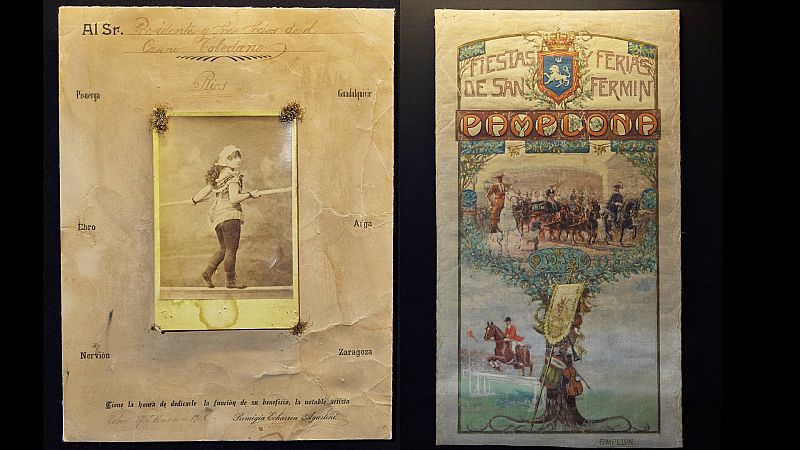 Al Sr. Presidente y Sres Socios de el
Casino Toledano
Rios
Pisuerga
Guadalquivir
Ebro
Arga
Nervión
Zaragoza
Tiene la honra de dedicarle la función de su beneficio, la notable artista
Remigia Echarren Aguslini
FIESTAS Y FERIAS
DE SAN FERMIN
PAMPLONA